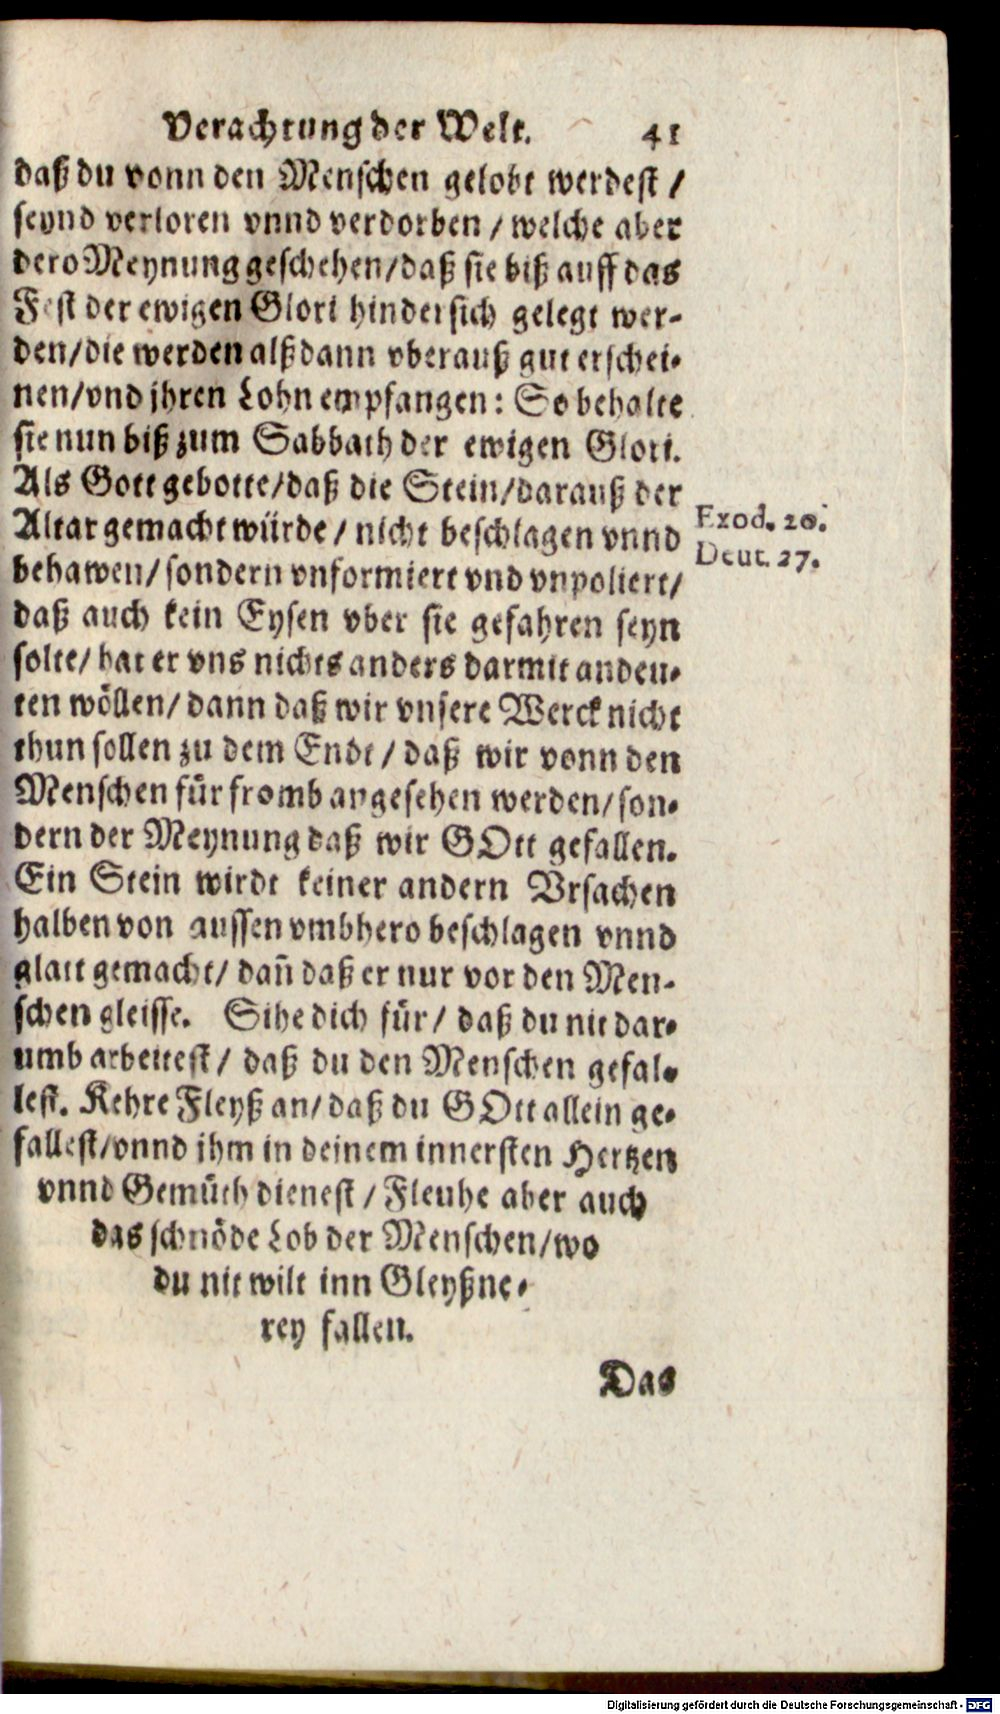 Verachtung der Welt. 41
daß du vonn den Menschen gelobt werdest /
seynd verloren vnnd verdorben / welche aber
dero Meynung geschehen/daß sie biß auff das
Fest der ewigen Glori hindersich gelegt wer-
den/die werden alßdann vberauß gut erschei-
nen/vnd jhren Lohn empfangen: So behalte
sie nun biß zum Sabbath der ewigen Glori.
Als Gott gebotte/daß die Stein/darauß der
Altar gemacht würde / nicht beschlagen vnnd
behawen/sondern vnformiert vnd vnpoliert/
daß auch kein Eysen vber sie gefahren seyn
solte/ hat er vns nichts anders darmit andeu-
ten wöllen/ dann daß wir vnsere Werck nicht
thun sollen zu dem Ende / daß wir vonn den
Menschen für fromb angesehen werden/son-
dern der Meynung daß wir GOtt gefallen.
Ein Stein wirdt keiner andern Vrsachen
halben von aussen vmbhero beschlagen vnnd
glatt gemacht/ dañ daß er nur vor den Men-
schen gleisse. Sihe dich für/ daß du nit dar-
umb arbeitest/ daß du den Menschen gefal-
lest. Kehre Fleyß an/daß du GOtt allein ge-
fallest/vnnd jhm in deinem innersten Hertzen
vnnd Gemüth dienest / Fleuhe aber auch
das schnöde Lob der Menschen/wo
du nit wilt inn Gleyßne-
rey fallen.
Das
Exod. 20.
Deut. 27.
Digitalisierung gefördert durch die Deutsche Forschungsgemeinschaft - DFG